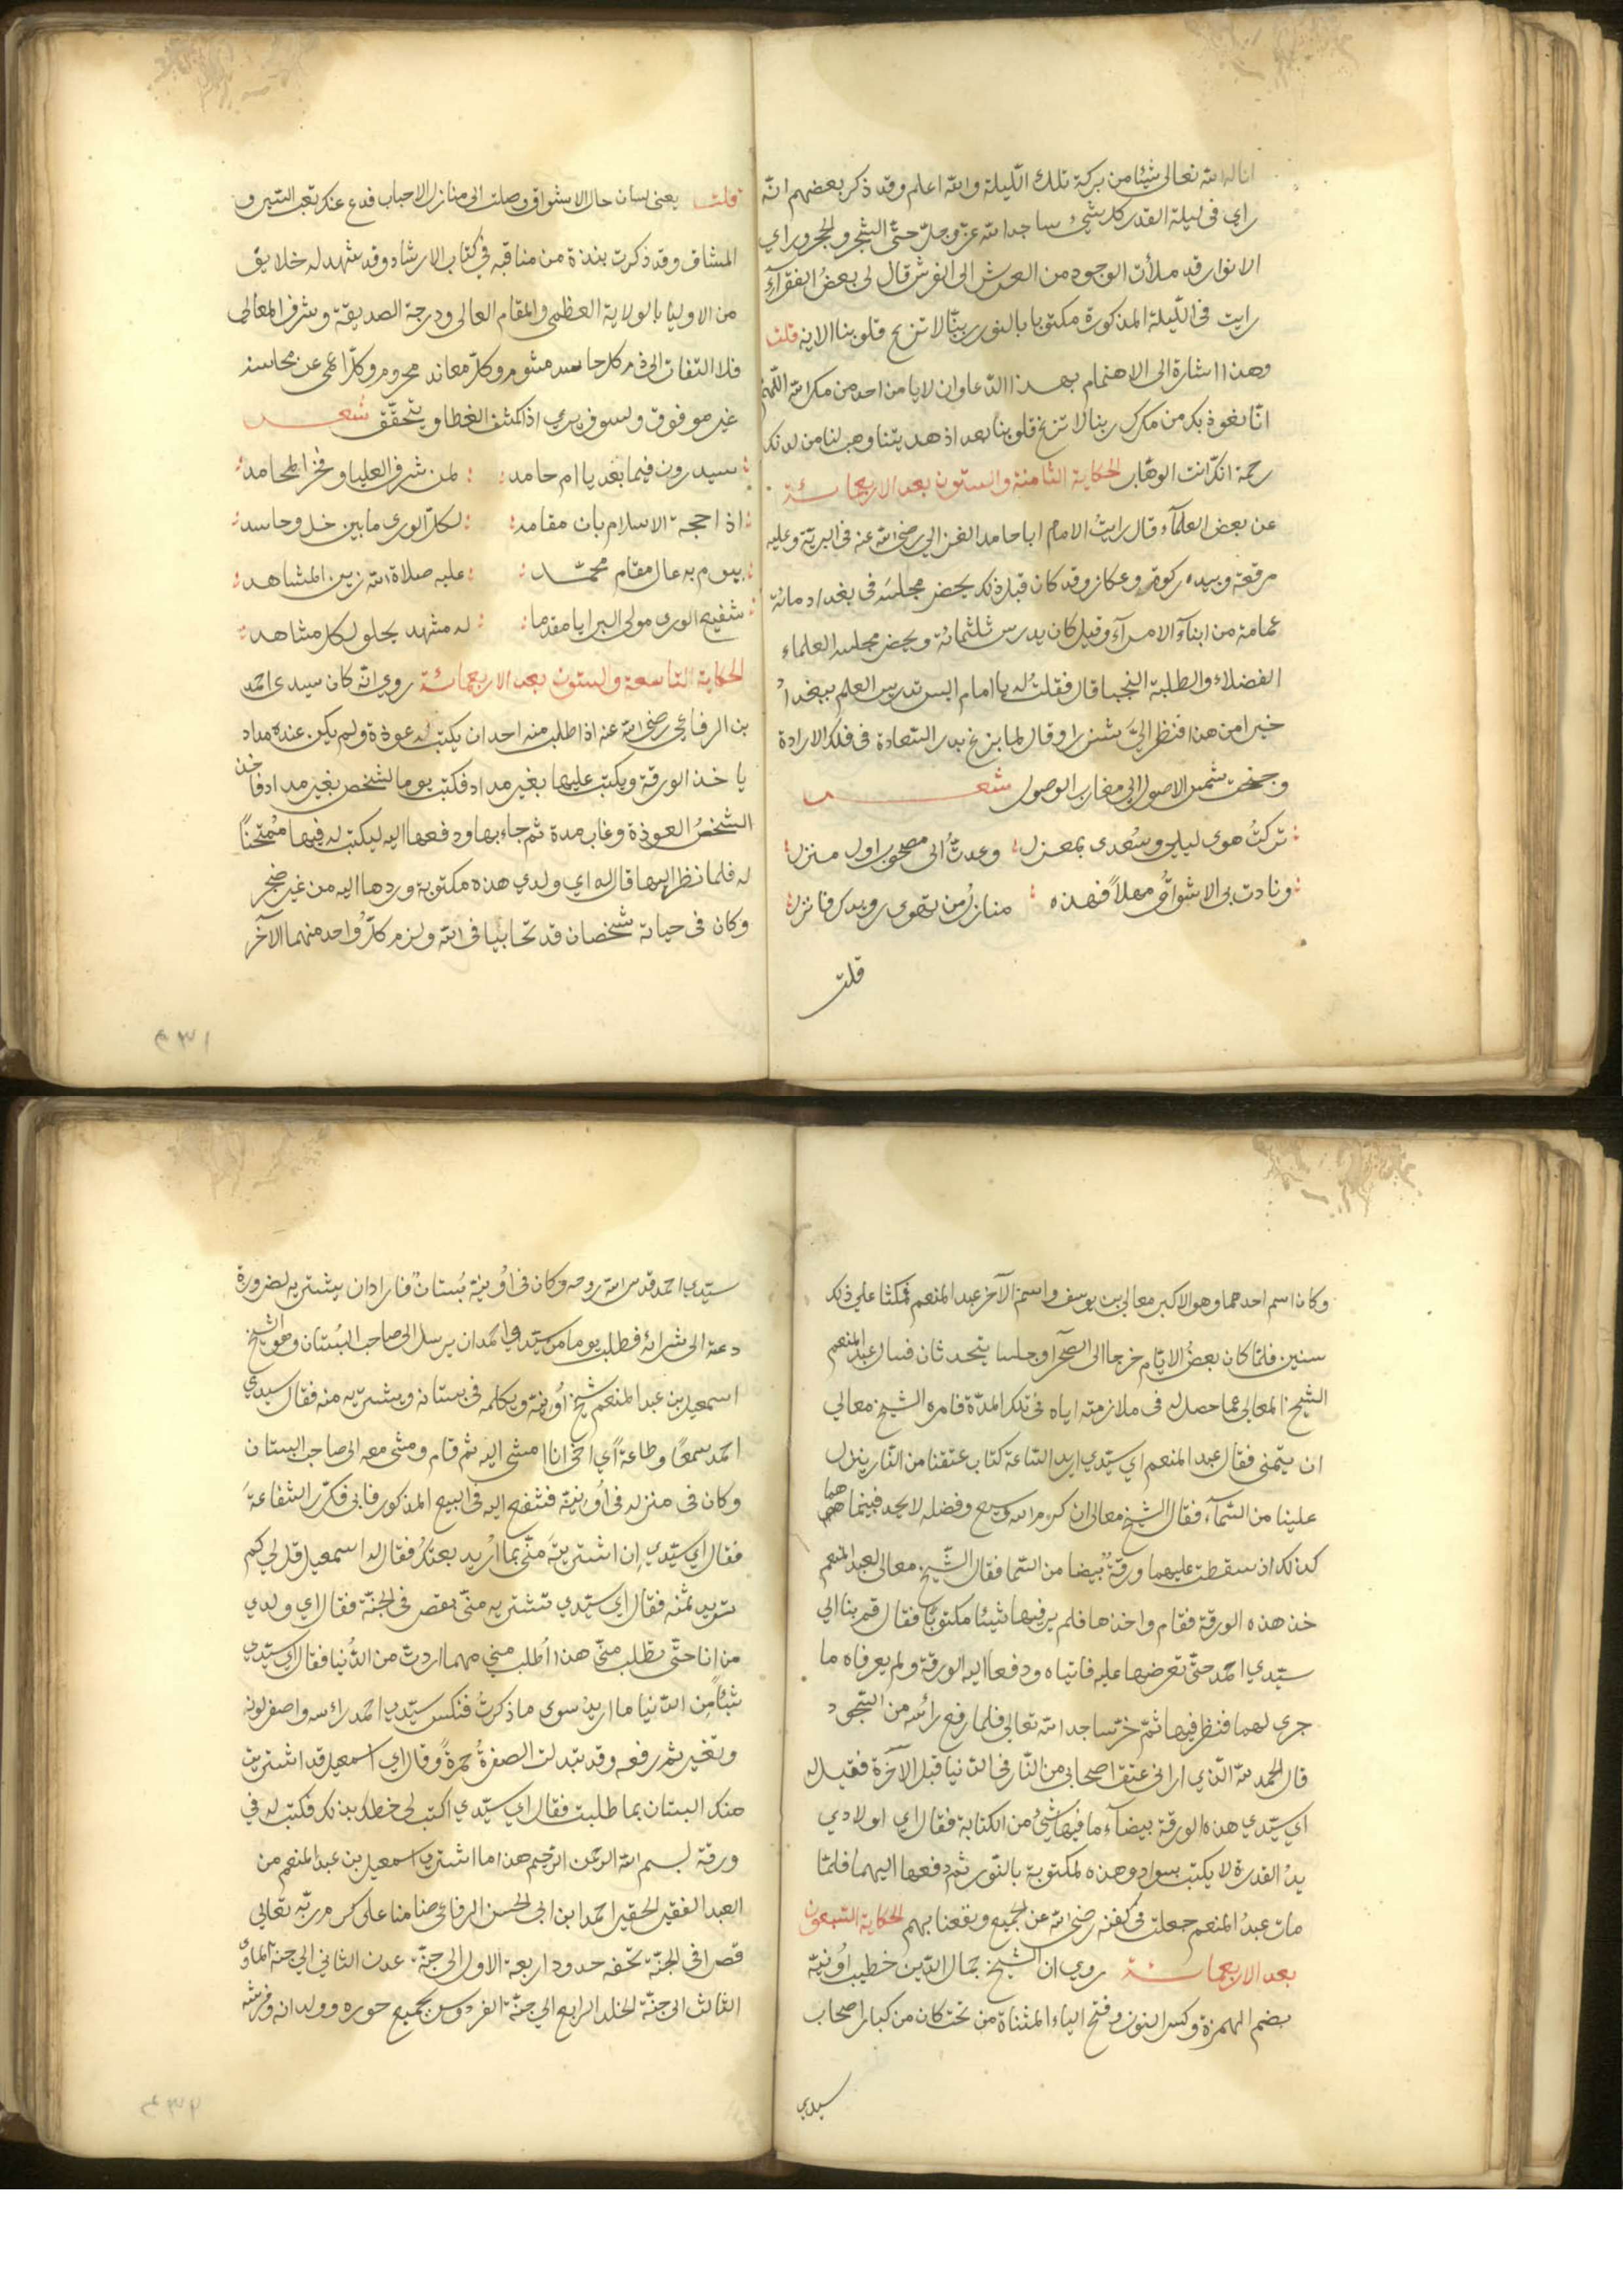 اناله الله تعالى شيئا من بركة تلك الليلة والله اعلم وقد ذكر بعضهم انه
راي فى ليلة القدر كل شيئ ساجدا لله عز وجل حتى الشجر والحجر وراي
الانوار قد ملأت الوجود من العرش الى الفرش قال لى بعض الفقرآء
رايت فى الليلة المذكورة مكتوبا بالنور ربنا لا تزغ قلوبنا الاية قلت
وهذا اشارة الى الاهتمام بهذا الدعا وان لا يامن احد من مكر الله اللهم
انا نعوذ بك من مكرك ربنا لا تزغ قلوبنا بعد اذ هديتنا وهب لنا من لدنك
رحمة انك انت الوهاب الحكاية الثامنة والستون بعد الاربعمائة
عن بعض العلمآء قال رايت الامام ابا حامد الغزالي رضى الله عنه فى البرية وعليه
مرقعة وبيده ركوة وعكاز وقد كان قبل ذلك يحضر مجلسه فى بغداد مائة
عمامة من ابنآء الامرآء وقيل كان يدرس ثلثمائة ويحضر مجلسه العلماء
الفضلاء والطلبة النجبا قال فقلت له يا امام اليس تدريس العلم ببغداد
خيرا من هذا فنظر الي شزرا وقال لما بزغ بدر السعادة فى فلك الارادة
وجنحت شمس الاصول الى مغارب الوصول شعر
تركت هوى ليلى وسعدى بمعزل وعدت الى مصحوب اول منزل
ونادت بى الاشواق مهلا فهذه منازل من تهوى رويدك فانزل
قلت
قلت يعنى لسان حال الاشواق وصلت الى منازل الاحباب فدع عنك تعب السير و
المشاق وقد ذكرت نبذة من مناقبه في كتاب الارشاد وقد شهد له خلايق
من الاوليا بالولاية العظمى والمقام العالى ودرجة الصديقة وشرف المعالى
فلا التفات الى ذم كل حاسد مشوم وكل معاند محروم وكل اعمى عن محاسنه
غير موفوق ولسوف يري اذا كشف الغطا ويتحقق شعر
سيدرون فيما بعد يا ام حامد لمن شرف العليا وفخر المحامد
اذا حجة الاسلام بان مقامه لكل الورى ما بين خل وحاسد
بيوم به عال مقام محمد عليه صلاة الله زين المشاهد
شفيع الورى مولى البرايا مقدما له مشهد يحلو لكل مشاهد
الحكاية التاسعة والستون بعد الاربعمائة روي انه كان سيدى احمد
بن الرفاعي رضى الله عنه اذا طلب منه احد ان يكتب له عوذة ولم يكن عنده مداد
ياخذ الورقة ويكتب عليها بغير مداد فكتب يوما لشخص بغير مداد فاخذ
الشخص العوذة وغاب مدة ثم جاء بها ودفعها اليه ليكتب له فيها ممتحنا
له فلما نظر اليها قال له اي ولدي هذه مكتوبة وردها اليه من غير ضجر
وكان فى حياته شخصان قد تحابيا فى الله ولزم كل واحد منهما الآخر
وكان اسم احدهما وهو الاكبر معالي بن يوسف واسم الآخر عبد المنعم فمكثا على ذلك
سنين فلما كان بعض الايام خرجا الى الصحرآ وجلسا يتحدثان فسال عبد المنعم
الشيخ المعالي عما حصل له فى ملازمته اياه فى تلك المدة فامره الشيخ معالي
ان يتمنى فقال عبد المنعم اي سيدي اريد الساعة كتاب عتقنا من النار ينزل
علينا من السمآء فقال الشيخ معالى ان كرم الله وسيع وفضله لا يحد فبينما هما
كذلك اذ سقطت عليهما ورقة بيضا من السما فقال الشيخ معالى لعبد المنعم
خذ هذه الورقة فقام واخذها فلم ير فيها شيئا مكتوبا فقال قم بنا الي
سيدي احمد حتى نعرضها عليه فاتياه ودفعا اليه الورقة ولم يعرفاه ما
جرى لهما فنظر فيها ثم خر ساجدا لله تعالى فلما رفع رأسه من السجود
قال الحمد لله الذي اراني عتق اصحابي من النار فى الدنيا قبل الآخرة فقيل له
اي سيدي هذه الورقة بيضآء ما فيها شئ من الكتابة فقال اي اولادي
يد القدرة لا يكتب بسواد وهذه لمكتوبة بالنور ثم دفعها اليهما فلما
مات عبد المنعم جعلت فى كفنه رضى الله عن الجميع ونفعنا بهم الحكاية السبعون
بعد الاربعمائة روي ان الشيخ جمال الدين خطيب اونية
بضم الهمزة وكسر النون وفتح الياء المثناة من تحت كان من كبار اصحاب
سيدي
سيدي احمد قدس الله روحه وكان فى اونية بستان فاراد ان يشتريه لضرورة
دعته الى شرائه فطلب يوما من سيدي احمد ان يرسل الى صاحب البستان وهو الشيخ
اسمعيل بن عبد المنعم شيخ اونية ويكلمه فى بستانه ويشتريه منه فقال سيدي
احمد سمعا وطاعة اي اخى انا امشى اليه ثم قام ومشى معه الى صاحب البستان
وكان فى منزله فى اونية فشفع اليه فى البيع المذكور فابى فكرر الشفاعة
فقال اي سيدي ان اشتريته منى بما اريد بعتك فقال له اسمعيل قل لي كم
تريد ثمنه فقال اي سيدي تشتريه منى بقصر فى الجنة فقال اي ولدي
من انا حتى تطلب منى هذا اطلب مني مهما اردت من الدنيا فقال اي سيدي
شيئا من الدنيا ما اريد سوى ما ذكرت فنكس سيدي احمد راسه واصفر لونه
وتغير ثم رفعه وقد تبدلت الصفرة حمرة وقال اي اسمعيل قد اشتريت
منك البستان بما طلبت فقال اي سيدي اكتب لى خطك بذلك فكتب له في
ورقة بسم الله الرحمن الرحيم هذا ما اشترى اسمعيل بن عبد المنعم من
العبد الفقير الحقير احمد ابن ابى الحسن الرفاعى ضامنا على كرم ربه تعالى
قصرا فى الجنة تحفه حدود اربعة الاول الى جنة عدن الثاني الي جنة الماوى
الثالث الى جنة الخلد الرابع الي جنة الفردوس بجميع حوره وولدانه وفرشه